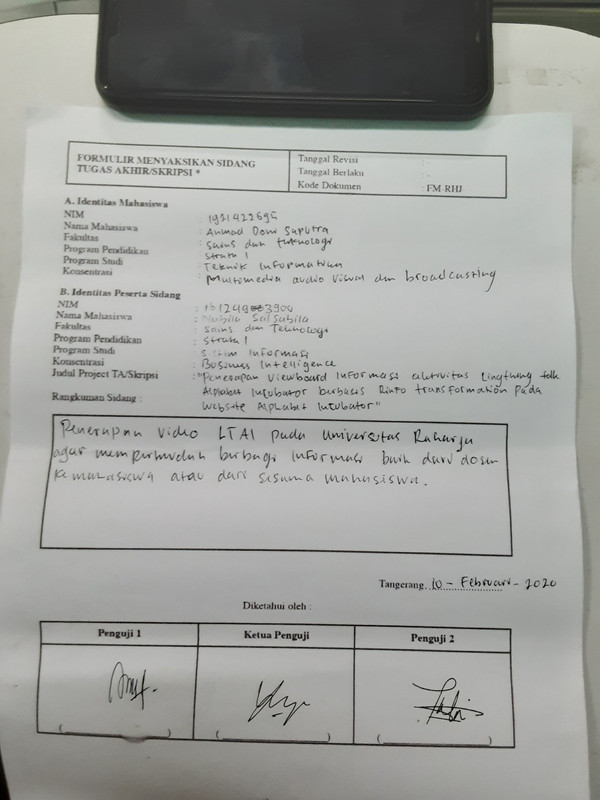 FORMULIR MENYAKSIKAN SIDANG
TUGAS AKHIR/SKRIPSI *
Tanggal Revisi : -
Tanggal Berlaku : -
Kode Dokumen : FM-RHJ
A. Identitas Mahasiswa
NIM : 1921422695
Nama Mahasiswa : Ahmad Doni Saputra
Fakultas : Sains dan Teknologi
Program Pendidikan : Strata 1
Program Studi : Teknik Informatika
Konsentrasi : Multimedia audio visual dan broadcasting
B. Identitas Peserta Sidang
NIM :
Nama Mahasiswa : Nabila Salsabila
Fakultas : Sains dan Teknologi
Program Pendidikan : Strata 1
Program Studi : Sistim Informasi
Konsentrasi : Business Intelligence
Judul Project TA/Skripsi : "Penerapan Viewboard Informasi aktivitas
Alphabet Incubator berbasis Rinfo transformation pada
Website Alphabet Incubator"
Rangkuman Sidang :
Penerapan Video LTAI pada Universitas Raharja
agar mempermudah berbagi informasi baik dari dosen
ke mahasiswa atau dari sesama mahasiswa.
Tangerang, 10 - Februari - 2020
Diketahui oleh :
Penguji 1
Ketua Penguji
Penguji 2